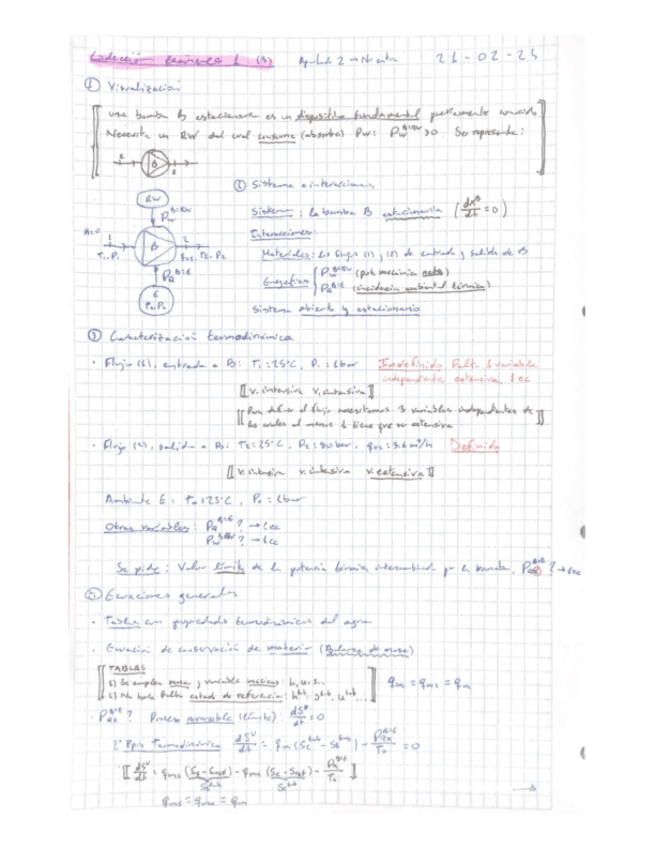 Colección problemas 1 (3) Apartado 2 → No entra 21-02-24
① Visualización
una bomba B estacionaria es un dispositivo fundamental perfectamente conocido
Necesita un RW del cual consume (absorbe) Pw: Pw^B:RW > 0. Se representa:
e B s
② Sistema e interacciones
RW
Pw^B:RW
Sistema: la bomba B estacionaria (dx^B/dt = 0)
Interacciones:
1 B 2
T1, P1 qv2, T2, P2
Materiales: los flujos (1) y (2) de entrada y salida de B
PQ^B:E
Energéticas { Pw^B:RW (pot. mecánica neta)
PQ^B:E (incidencia ambiental térmica)
E
To, Po
Sistema abierto y estacionario
③ Caracterización termodinámica
· Flujo (1), entrada a B: T1 = 25°C, P1 = 1bar Indefinido Falta 1 variable
independiente extensiva, 1 ec
[[ v. intensiva v. intensiva ]]
[[ Para definir el flujo necesitamos 3 variables independientes de
las cuales al menos 1 tiene que ser extensiva ]]
· Flujo (2), salida a B: T2 = 25°C, P2 = 80bar, qv2 = 3.6 m³/h Definido
[[ v. intensiva v. intensiva v. extensiva ]]
Ambiente E: To = 25°C, Po = 1bar
Otras variables: PQ^B:E? → 1 ec
Pw^B:RW? → 1 ec
Se pide: Valor límite de la potencia térmica intercambiada por la bomba, PQ^B:E? → 1 ec
⑤ Ecuaciones generales
· Tablas con propiedades termodinámicas del agua
· Ecuación de conservación de materia (Balance de masa)
TABLAS
1) Se emplea masa y variables másicas: h, u, s...
2) No hace falta estado de referencia: h^tab, s^tab, u^tab...
qm1 = qm2 = qm
· PQ^B:E? Proceso reversible (límite): dS^U/dt = 0
2° Ppio Termodinámica dS^U/dt = qm (S2^tab - S1^tab) - PQ^B:E/To = 0
[[ dS^U/dt = qms (Ss - Sref) - qme (Se - Sref) - PQ^B:E/To ]]
Ss^tab Se^tab
qms = qme = qm